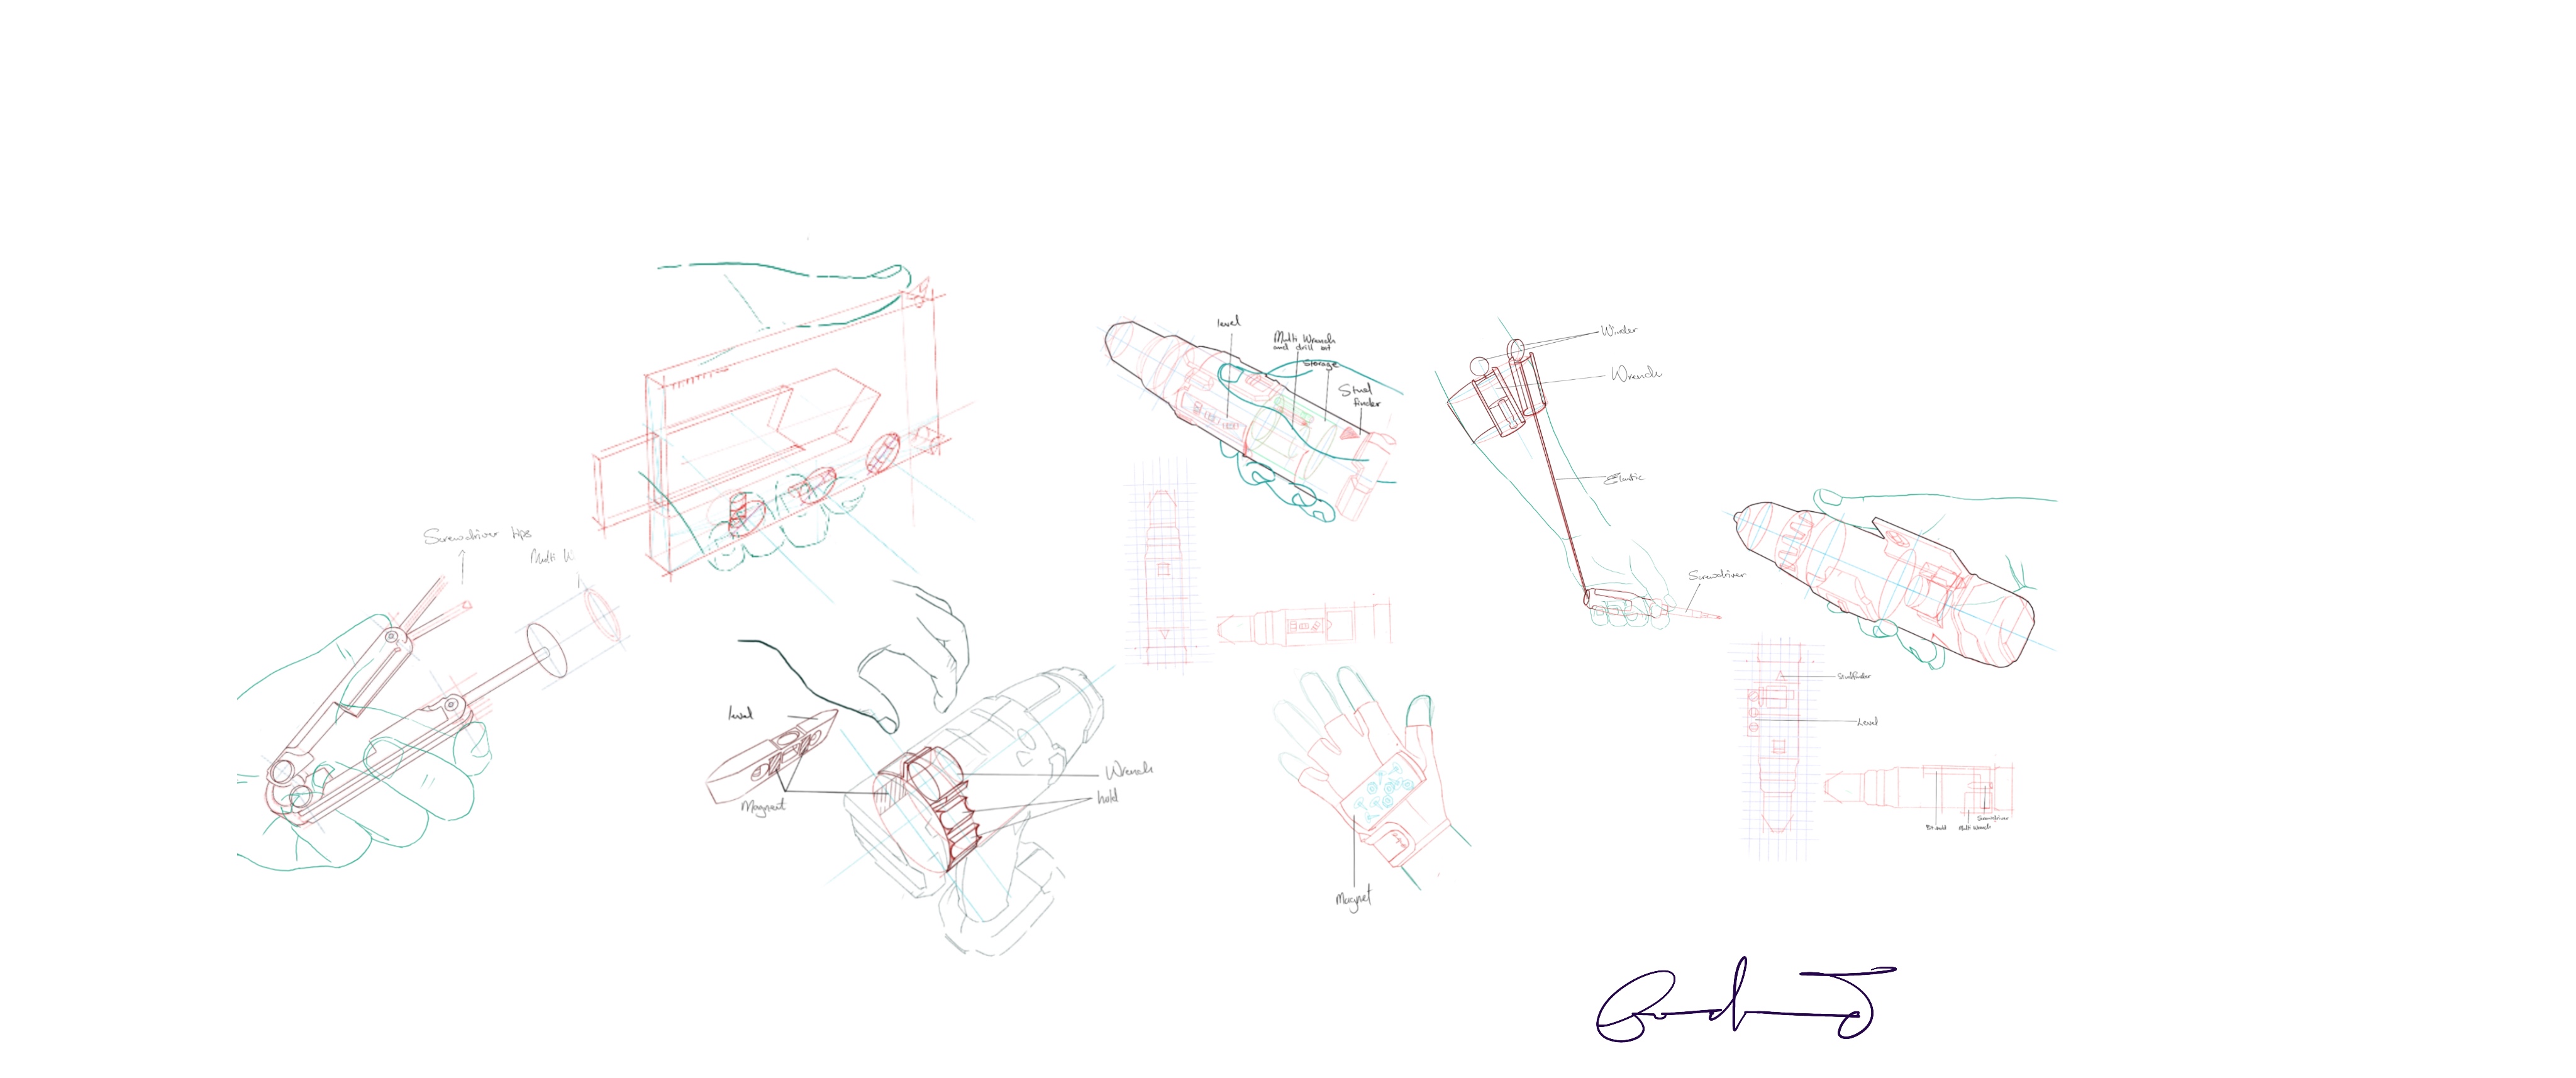 Screwdriver tips
Multi W
level
Magnet
Wrench
hold
level
Multi Wrench
and drill set
Storage
Stud
finder
Magnet
Winder
Wrench
Elastic
Screwdriver
Studfinder
Level
Screwdriver
Multi Wrench